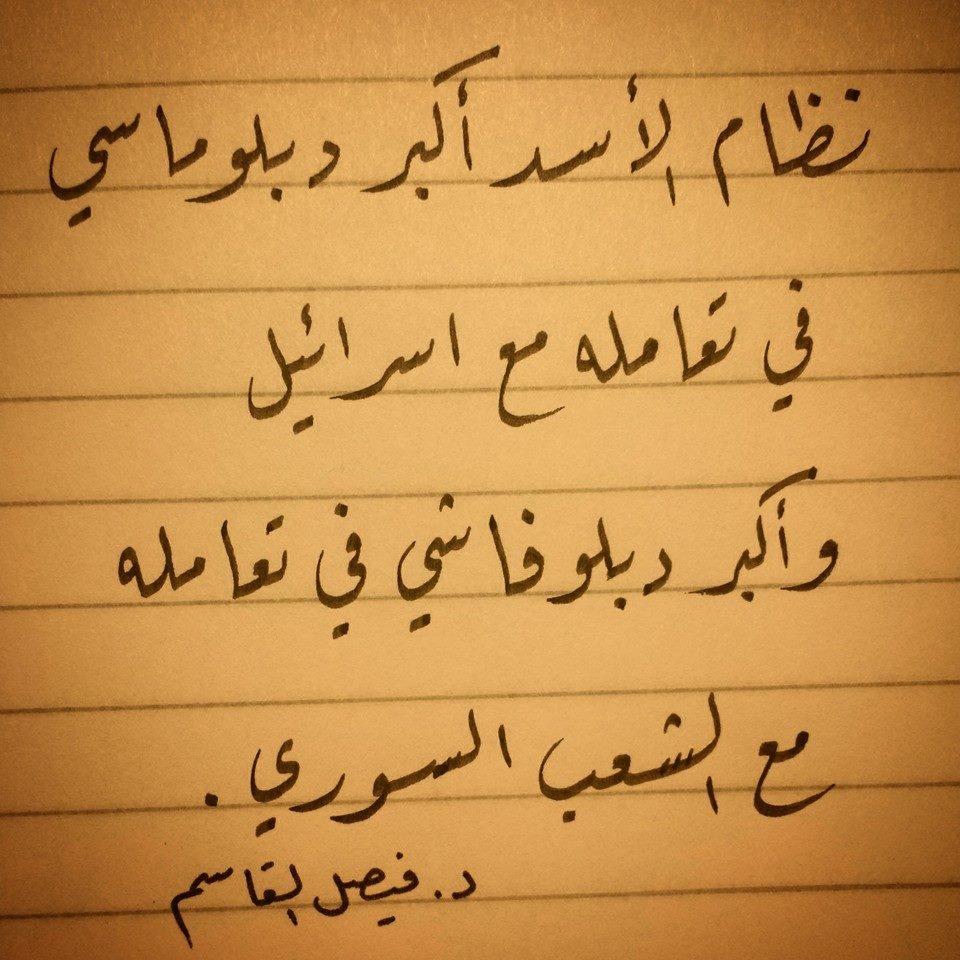 نظام الأسد أكبر دبلوماسي
في تعامله مع اسرائيل
وأكبر دبلوفاشي في تعامله
مع الشعب السوري .
د. فيصل القاسم